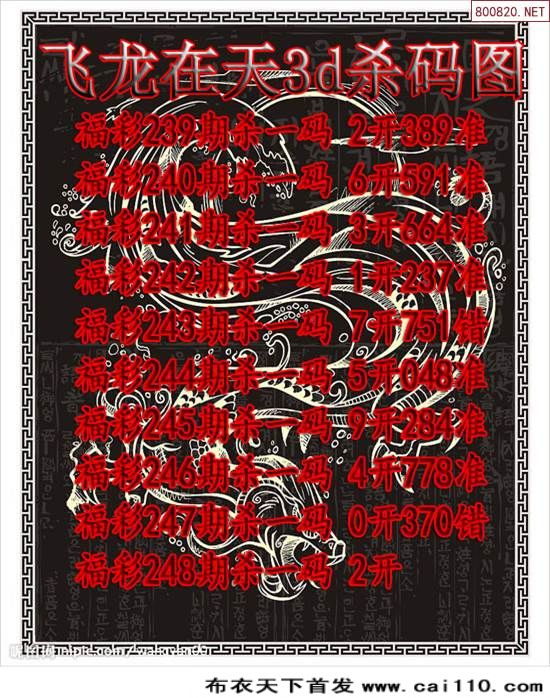 800820.NET
飞龙在天3d杀码图
福彩239期杀一码 2开389准
福彩240期杀一码 6开591准
福彩241期杀一码 3开664准
福彩242期杀一码 1开237准
福彩243期杀一码 7开751错
福彩244期杀一码 5开048准
福彩245期杀一码 9开284准
福彩246期杀一码 4开778准
福彩247期杀一码 0开370错
福彩248期杀一码 2开
布衣天下首发 www.cai110.com